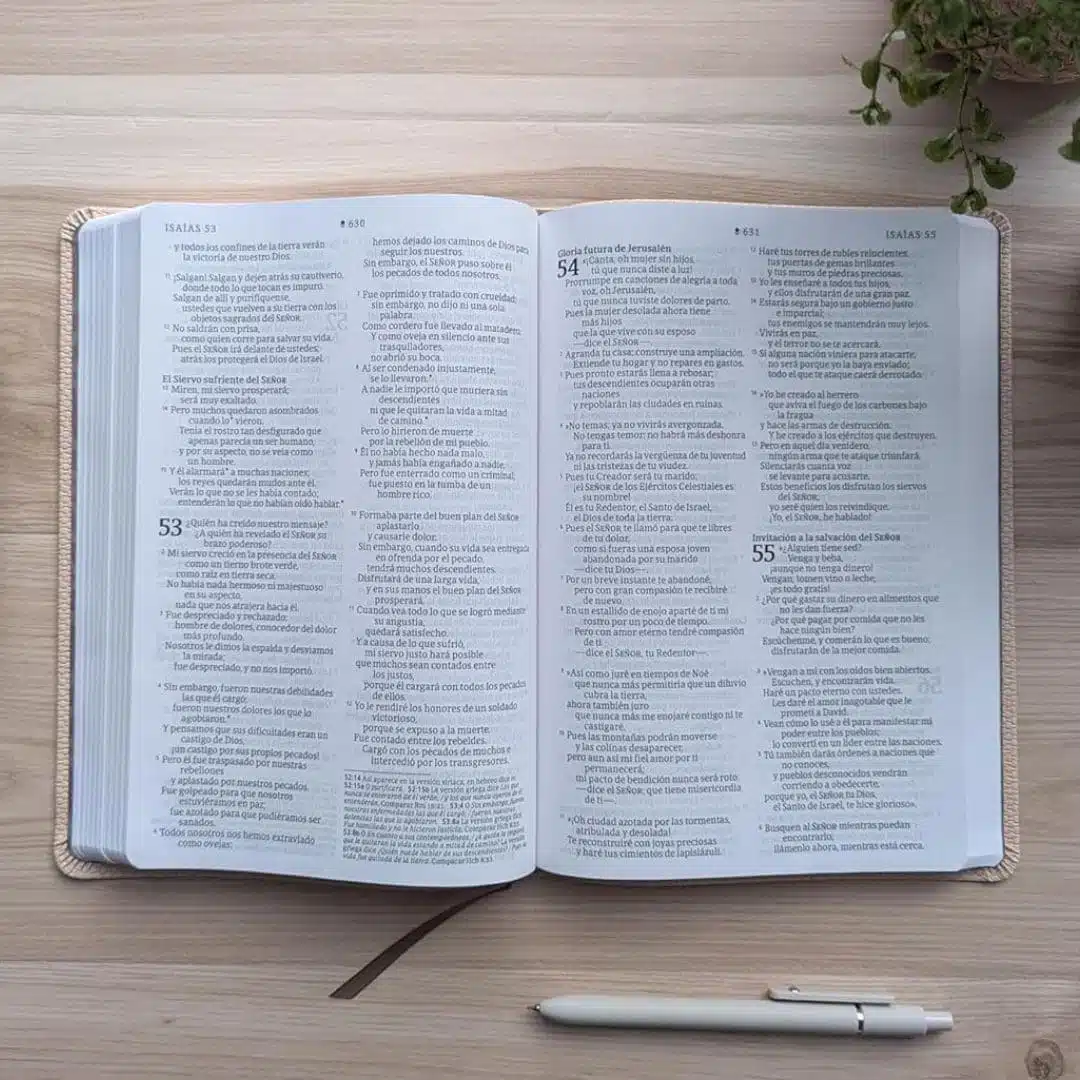 ISAÍAS 53
630
y todos los confines de la tierra verán
la victoria de nuestro Dios.
11 ¡Salgan! Salgan y dejen atrás su cautiverio,
donde todo lo que tocan es impuro.
Salgan de allí y purifíquense,
ustedes que vuelven a su tierra con los
objetos sagrados del SEÑOR.
12 No saldrán con prisa,
como quien corre para salvar su vida.
Pues el SEÑOR irá delante de ustedes;
atrás los protegerá el Dios de Israel.
El Siervo sufriente del SEÑOR
13 Miren, mi siervo prosperará;
será muy exaltado.
14 Pero muchos quedaron asombrados
cuando lo* vieron.
Tenía el rostro tan desfigurado que
apenas parecía un ser humano,
y por su aspecto, no se veía como
un hombre.
15 Y él alarmará* a muchas naciones;
los reyes quedarán mudos ante él.
Verán lo que no se les había contado;
entenderán lo que no habían oído hablar.*
53 ¿Quién ha creído nuestro mensaje?
¿A quién ha revelado el SEÑOR su
brazo poderoso?
2 Mi siervo creció en la presencia del SEÑOR
como un tierno brote verde,
como raíz en tierra seca.
No había nada hermoso ni majestuoso
en su aspecto,
nada que nos atrajera hacia él.
3 Fue despreciado y rechazado:
hombre de dolores, conocedor del dolor
más profundo.
Nosotros le dimos la espalda y desviamos
la mirada;
fue despreciado, y no nos importó.
4 Sin embargo, fueron nuestras debilidades
las que él cargó;
fueron nuestros dolores los que lo
agobiaron.*
Y pensamos que sus dificultades eran un
castigo de Dios,
¡un castigo por sus propios pecados!
5 Pero él fue traspasado por nuestras
rebeliones
y aplastado por nuestros pecados.
Fue golpeado para que nosotros
estuviéramos en paz;
fue azotado para que pudiéramos ser
sanados.
6 Todos nosotros nos hemos extraviado
como ovejas;
hemos dejado los caminos de Dios para
seguir los nuestros.
Sin embargo, el SEÑOR puso sobre él
los pecados de todos nosotros.
7 Fue oprimido y tratado con crueldad;
sin embargo, no dijo ni una sola
palabra.
Como cordero fue llevado al matadero;
Y como oveja en silencio ante sus
trasquiladores,
no abrió su boca.
8 Al ser condenado injustamente,
se lo llevaron.*
A nadie le importó que muriera sin
descendientes
ni que le quitaran la vida a mitad
de camino.*
Pero lo hirieron de muerte
por la rebelión de mi pueblo.
9 Él no había hecho nada malo,
y jamás había engañado a nadie.
Pero fue enterrado como un criminal;
fue puesto en la tumba de un
hombre rico.
10 Formaba parte del buen plan del SEÑOR
aplastarlo
y causarle dolor.
Sin embargo, cuando su vida sea entregada
en ofrenda por el pecado,
tendrá muchos descendientes.
Disfrutará de una larga vida,
y en sus manos el buen plan del SEÑOR
prosperará.
11 Cuando vea todo lo que se logró mediante
su angustia,
quedará satisfecho.
Y a causa de lo que sufrió,
mi siervo justo hará posible
que muchos sean contados entre
los justos,
porque él cargará con todos los pecados
de ellos.
12 Yo le rendiré los honores de un soldado
victorioso,
porque se expuso a la muerte.
Fue contado entre los rebeldes.
Cargó con los pecados de muchos e
intercedió por los transgresores.
631
ISAÍAS 55
Gloria futura de Jerusalén
54 «¡Canta, oh mujer sin hijos,
tú que nunca diste a luz!
Prorrumpe en canciones de alegría a toda
voz, oh Jerusalén,
tú que nunca tuviste dolores de parto.
Pues la mujer desolada ahora tiene
más hijos
que la que vive con su esposo
—dice el SEÑOR—.
2 Agranda tu casa; construye una ampliación.
Extiende tu hogar y no repares en gastos.
3 Pues pronto estarás llena a rebosar;
tus descendientes ocuparán otras
naciones
y repoblarán las ciudades en ruinas.
4 »No temas; ya no vivirás avergonzada.
No tengas temor; no habrá más deshonra
para ti.
Ya no recordarás la vergüenza de tu juventud
ni las tristezas de tu viudez.
5 Pues tu Creador será tu marido;
¡el SEÑOR de los Ejércitos Celestiales es
su nombre!
Él es tu Redentor, el Santo de Israel,
el Dios de toda la tierra.
6 Pues el SEÑOR te llamó para que te libres
de tu dolor,
como si fueras una esposa joven
abandonada por su marido
—dice tu Dios—.
7 Por un breve instante te abandoné,
pero con gran compasión te recibiré
de nuevo.
8 En un estallido de enojo aparté de ti mi
rostro por un poco de tiempo.
Pero con amor eterno tendré compasión
de ti
—dice el SEÑOR, tu Redentor—.
9 »Así como juré en tiempos de Noé
que nunca más permitiría que un diluvio
cubra la tierra,
ahora también juro
que nunca más me enojaré contigo ni te
castigaré.
10 Pues las montañas podrán moverse
y las colinas desaparecer,
pero aun así mi fiel amor por ti
permanecerá;
mi pacto de bendición nunca será roto
—dice el SEÑOR, que tiene misericordia
de ti—.
11 »¡Oh ciudad azotada por las tormentas,
atribulada y desolada!
Te reconstruiré con joyas preciosas
y haré tus cimientos de lapislázuli.
12 Haré tus torres de rubíes relucientes,
tus puertas de gemas brillantes
y tus muros de piedras preciosas.
13 Yo les enseñaré a todos tus hijos,
y ellos disfrutarán de una gran paz.
14 Estarás segura bajo un gobierno justo
e imparcial;
tus enemigos se mantendrán muy lejos.
Vivirás en paz,
y el terror no se te acercará.
15 Si alguna nación viniera para atacarte,
no será porque yo la haya enviado;
todo el que te ataque caerá derrotado.
16 »Yo he creado al herrero
que aviva el fuego de los carbones bajo
la fragua
y hace las armas de destrucción.
Y he creado a los ejércitos que destruyen.
17 Pero en aquel día venidero,
ningún arma que te ataque triunfará.
Silenciarás cuanta voz
se levante para acusarte.
Estos beneficios los disfrutan los siervos
del SEÑOR;
yo seré quien los reivindique.
¡Yo, el SEÑOR, he hablado!
Invitación a la salvación del SEÑOR
55 »¿Alguien tiene sed?
Venga y beba,
¡aunque no tenga dinero!
Vengan, tomen vino o leche,
¡es todo gratis!
2 ¿Por qué gastar su dinero en alimentos que
no les dan fuerza?
¿Por qué pagar por comida que no les
hace ningún bien?
Escúchenme, y comerán lo que es bueno;
disfrutarán de la mejor comida.
3 »Vengan a mí con los oídos bien abiertos.
Escuchen, y encontrarán vida.
Haré un pacto eterno con ustedes.
Les daré el amor inagotable que le
prometí a David.
4 Vean cómo lo usé a él para manifestar mi
poder entre los pueblos;
lo convertí en un líder entre las naciones.
5 Tú también darás órdenes a naciones que
no conoces,
y pueblos desconocidos vendrán
corriendo a obedecerte,
porque yo, el SEÑOR tu Dios,
el Santo de Israel, te hice glorioso».
6 Busquen al SEÑOR mientras puedan
encontrarlo;
llámenlo ahora, mientras está cerca.